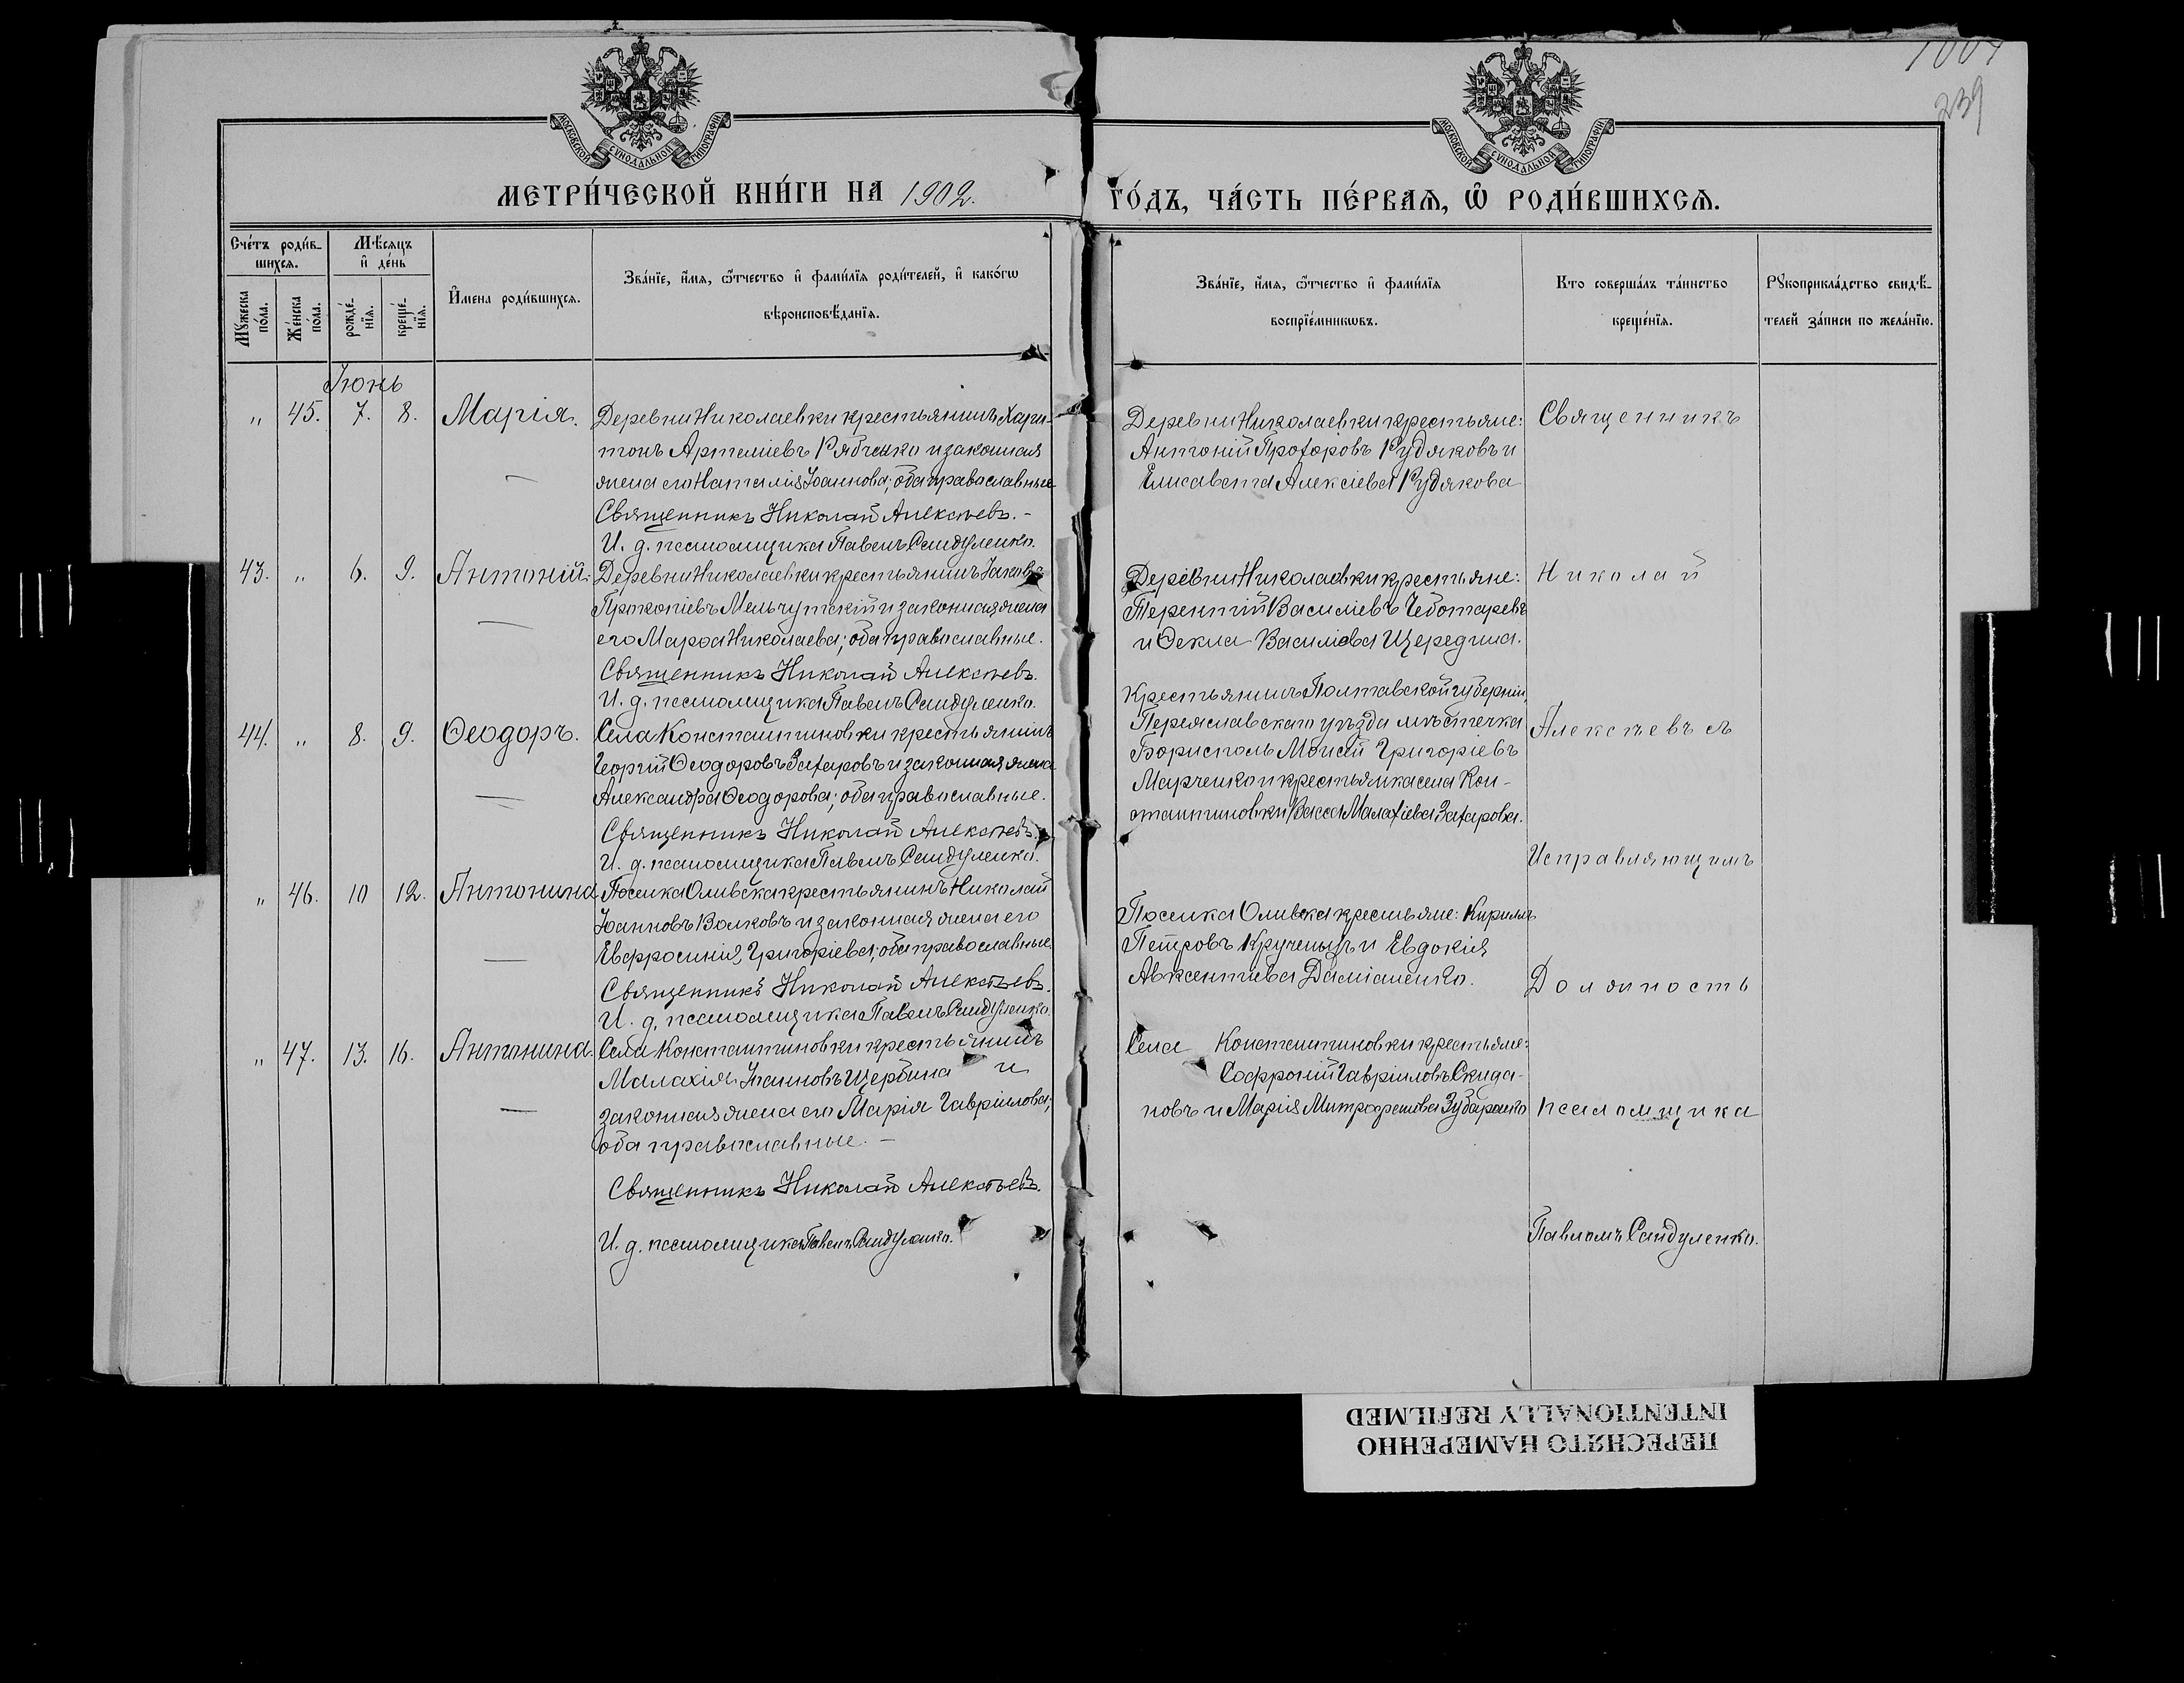 1004
239
МОСКОВСКОЙ СѴНОДАЛЬНОЙ ТИПОГРАФІИ
МОСКОВСКОЙ СѴНОДАЛЬНОЙ ТИПОГРАФІИ
МЕТРИ́ЧЕСКОЙ КНИ́ГИ НА 1902.
ГО́ДЪ, ЧА́СТЬ ПЕ́РВАѦ, Ѽ РОДИ́ВШИХСѦ.
Сче́тъ роди́в-
шихсѧ.
Мѣ́сѧцъ
и҆ де́нь
Мꙋ́жеска
по́ла.
Же́нска
по́ла.
рожде́-
нїѧ.
креще́-
нїѧ.
И҆мена роди́вшихсѧ.
Зва́нїе, и҆́мѧ, ѻ҆́тчество и҆ фами́лїѧ роди́телей, и҆ како́гѡ
вѣроисповѣ́данїѧ.
Зва́нїе, и҆́мѧ, ѻ҆́тчество и҆ фами́лїѧ
воспрїе́мникѡвъ.
Кто соверша́лъ та́инство
креще́нїѧ.
Рꙋкоприкла́дство свидѣ́-
телей за́писи по жела́нїю.
Іюнь
„ 45. 7. 8. Марія.
Деревни Николаевки крестьянинъ Хари-
тонъ Артеміевъ Рябченко и законная
жена его Наталія Іоаннова; оба православные
Священникъ Николай Алексѣевъ. -
И. д. псаломщика Павелъ Сандуленко.
Деревни Николаевки крестьяне:
Антоній Прохоровъ Рудяковъ и
Елисавета Алексіева Рудякова
Священникъ
43. „ 6. 9. Антоній.
Деревни Николаевки крестьянинъ Іаковъ
Прокопіевъ Мельчутскій и законная жена
его Марѳа Николаева; оба православные.
Священникъ Николай Алексѣевъ.
И. д. псаломщика Павелъ Сандуленко.
Деревни Николаевки крестьяне:
Терентій Василіевъ Чеботаревъ
и Ѳекла Василіева Щередина.
Николай
44. „ 8. 9. Ѳеодоръ.
Села Константиновки крестьянинъ
Георгій Ѳеодоровъ Захаровъ и законная жена
Александра Ѳеодорова; оба православные.
Священникъ Николай Алексѣевъ.
И. д. псаломщика Павелъ Сандуленко.
Крестьянинъ Полтавской губерніи,
Переяславскаго уѣзда мѣстечка
Борисполь Моисей Григоріевъ
Марченко и крестьянка села Кон-
стантиновки Васса Малахіева Захарова.
Алексѣевъ съ
Исправляющимъ
„ 46. 10 12. Антонина
Поселка Оливска крестьянинъ Николай
Іоанновъ Волковъ и законная жена его
Евфросинія Григоріева; оба православные.
Священникъ Николай Алексѣевъ.
И. д. псаломщика Павелъ Сандуленко.
Поселка Оливска крестьяне: Кириллъ
Петровъ Крученыхъ и Евдокія
Авксентіева Даміаненко.
Должность
„ 47. 13. 16. Антонина.
Села Константиновки крестьянинъ
Малахія Іоанновъ Щербина и
законная жена его Марія Гавріилова;
оба православные. -
Священникъ Николай Алексѣевъ.
И. д. псаломщика Павелъ Сандуленко.
Села Константиновки крестьяне:
Софроній Гавріиловъ Скида-
новъ и Марія Митрофанова Зубарева
псаломщика
Павломъ Сандуленко.
ПЕРЕСНЯТО НАМЕРЕННО
INTENTIONALLY REFILMED